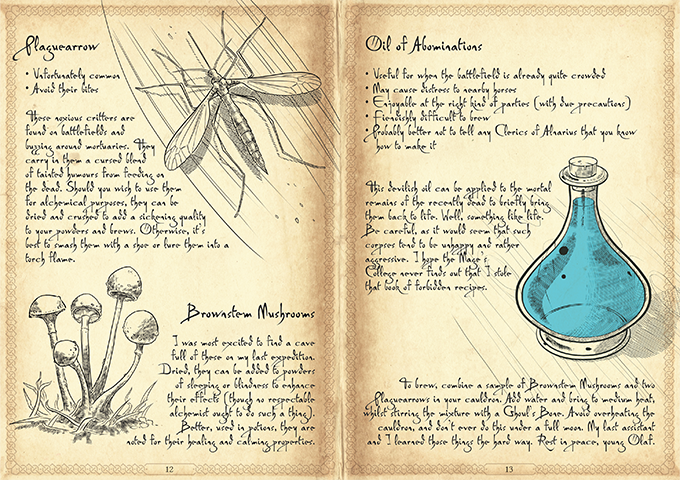 Plaguearrow
• Unfortunately common
• Avoid their bites
These noxious critters are
found on battlefields and
buzzing around mortuaries. They
carry in them a cursed blend
of tainted humours from feeding on
the dead. Should you wish to use them
for alchemical purposes, they can be
dried and crushed to add a sickening quality
to your powders and brews. Otherwise, it's
best to smash them with a shoe or lure them into a
torch flame.
Brownstem Mushrooms
I was most excited to find a cave
full of these on my last expedition.
Dried, they can be added to powders
of sleeping or blindness to enhance
their effects (though no respectable
alchemist ought to do such a thing).
Better, used in potions, they are
noted for their healing and calming properties.
12
Oil of Abominations
• Useful for when the battlefield is already quite crowded
• May cause distress to nearby horses
• Enjoyable at the right kind of parties (with due precautions)
• Fiendishly difficult to brew
• Probably better not to tell any Clerics of Alnarius that you know
how to make it
This devilish oil can be applied to the mortal
remains of the recently dead to briefly bring
them back to life. Well, something like life.
Be careful, as it would seem that such
corpses tend to be unhappy and rather
aggressive. I hope the Mage's
College never finds out that I stole
that book of forbidden recipes.
To brew, combine a sample of Brownstem Mushrooms and two
Plaguearrows in your cauldron. Add water and bring to medium heat,
whilst stirring the mixture with a Ghoul's Bone. Avoid overheating the
cauldron, and don't ever do this under a full moon. My last assistant
and I learned those things the hard way. Rest in peace, young Olaf.
13